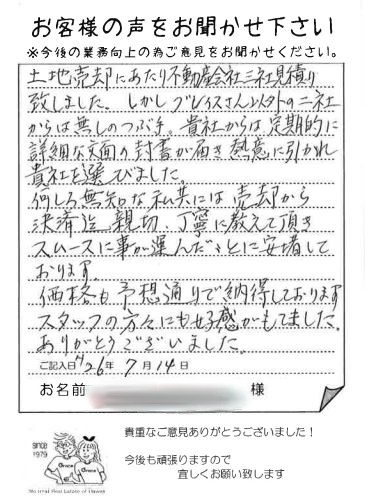 お客様の声をお聞かせ下さい
※今後の業務向上の為ご意見をお聞かせください。
土地売却にあたり不動産会社三社見積り
致しました。しかしグレイスさん以外の二社
からは無しのつぶ手。貴社からは定期的に
詳細な文面の封書が届き熱意に引かれ
貴社を選びました。
何しろ無知な私共には売却から
決済迄親切、丁寧に教えて頂き
スムースに事が運んだことに安堵して
おります。
価格も予想通りで納得しております
スタッフの方々にも好感がもてました。
ありがとうございました。
ご記入日 H26年 7月14日
お名前 様
貴重なご意見ありがとうございました！
今後も頑張りますので
宜しくお願い致します
SINCE
1979
Grace
Grace